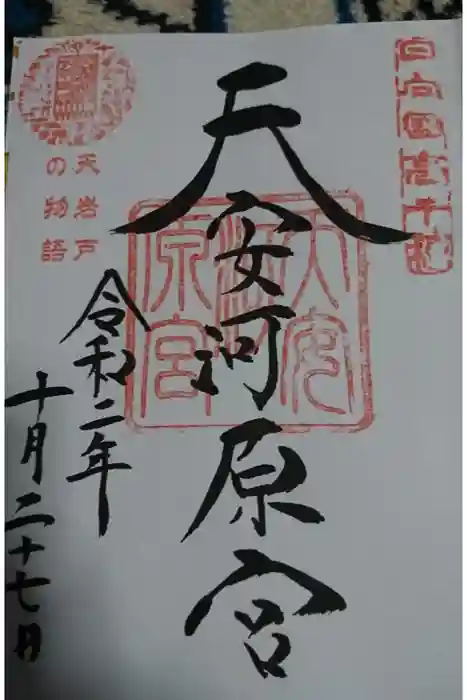 日向国高千穂
天安河原宮
天安河原宮
令和二年
十月二十七日
天岩戸
の物語